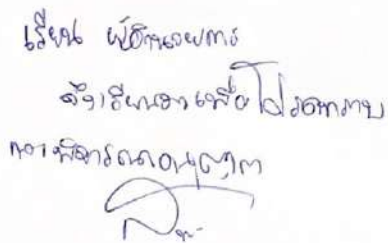 เรียน ผู้อำนวยการ
จึงเรียนมาเพื่อโปรดทราบ
และพิจารณาอนุญาต